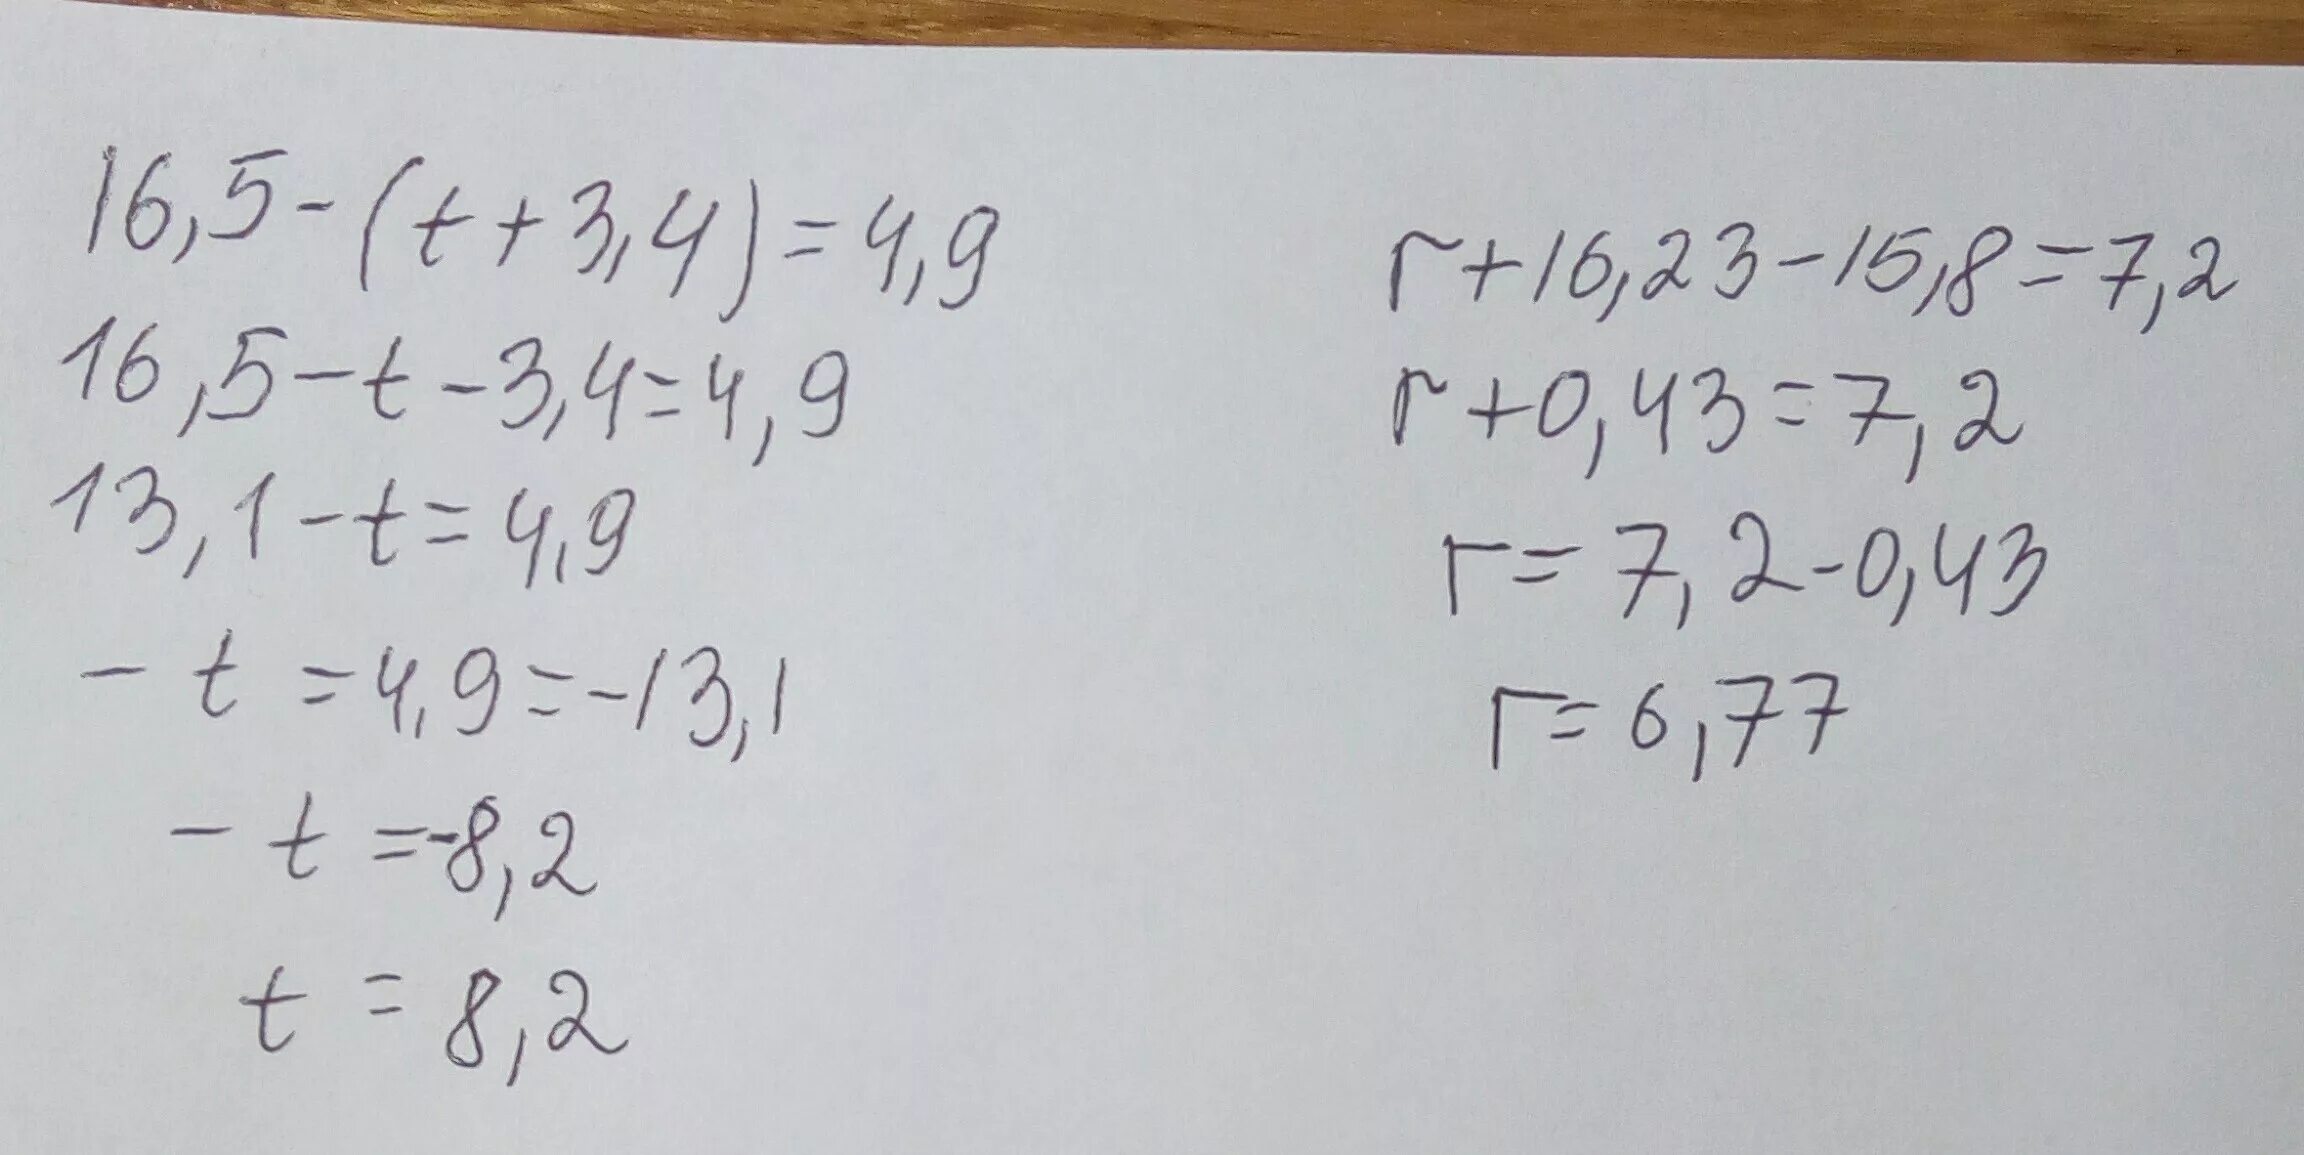 16,5-(t+3,4)=4,9
16,5-t-3,4=4,9
13,1-t=4,9
-t=4,9=-13,1
-t=-8,2
t=8,2
r+16,23-15,8=7,2
r+0,43=7,2
r=7,2-0,43
r=6,77